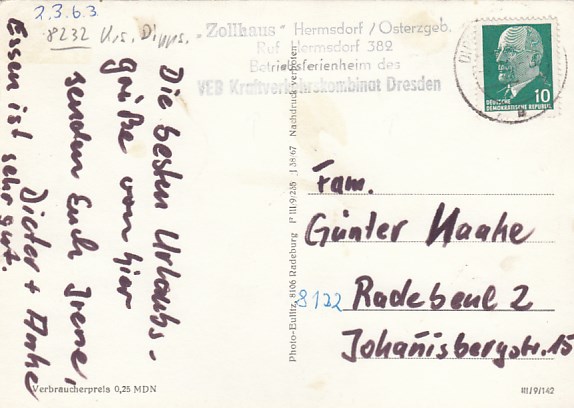 2.3.6.3.
8232 Krs. Dipps.
„Zollhaus" Hermsdorf/Osterzgeb.
Ruf Hermsdorf 382
Betriebsferienheim des
VEB Kraftverkehrskombinat Dresden
10
DEUTSCHE
DEMOKRATISCHE REPUBLIK
Die besten Urlaubs-
grüße von hier
senden Euch Irene,
Dieter + Anke
Essen ist sehr gut.
Photo-Eulitz, 8106 Radeburg P III/9/265 J 38/67 Nachdruck verboten
Fam.
Günter Haake
8122 Radebeul 2
Johannisbergstr. 15
Verbraucherpreis 0,25 MDN
III/9/142